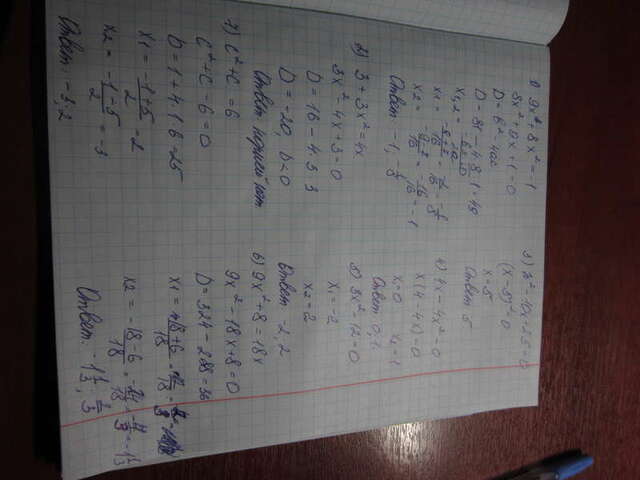 1) 9x + 8x² = -1
8x² + 9x + 1 = 0
D = b² - 4ac
D = 81 - 4 · 8 · 1 = 49
x₁ = = -2/16 = -1/8
x₂ = = -16/16 = -1
Ответ: -1, -1/8
2) 3 + 3x² = 4x
3x² - 4x + 3 = 0
D = 16 - 4 · 3 · 3
D = -20, D < 0
Ответ: корней нет
7) c² + c = 6
c² + c - 6 = 0
D = 1 + 4 · 1 · 6 = 25
x₁ = (-1+5)/2 = 2
x₂ = (-1-5)/2 = -3
Ответ: -3, 2
3) x² - 10x + 25 = 0
(x - 5)² = 0
x = 5
Ответ: 5
4) 4x - 4x² = 0
x(4 - 4x) = 0
x₁ = 0 x₂ = 1
Ответ: 0, 1
5) 3x² - 12 = 0
x₁ = -2
x₂ = 2
Ответ: -2, 2
6) 9x² + 8 = 18x
9x² - 18x + 8 = 0
D = 324 - 288 = 36
x₁ = 18+6/18
x₂ = -18-6/18 = -1 1/3
Ответ: -1 1/3; 2/3